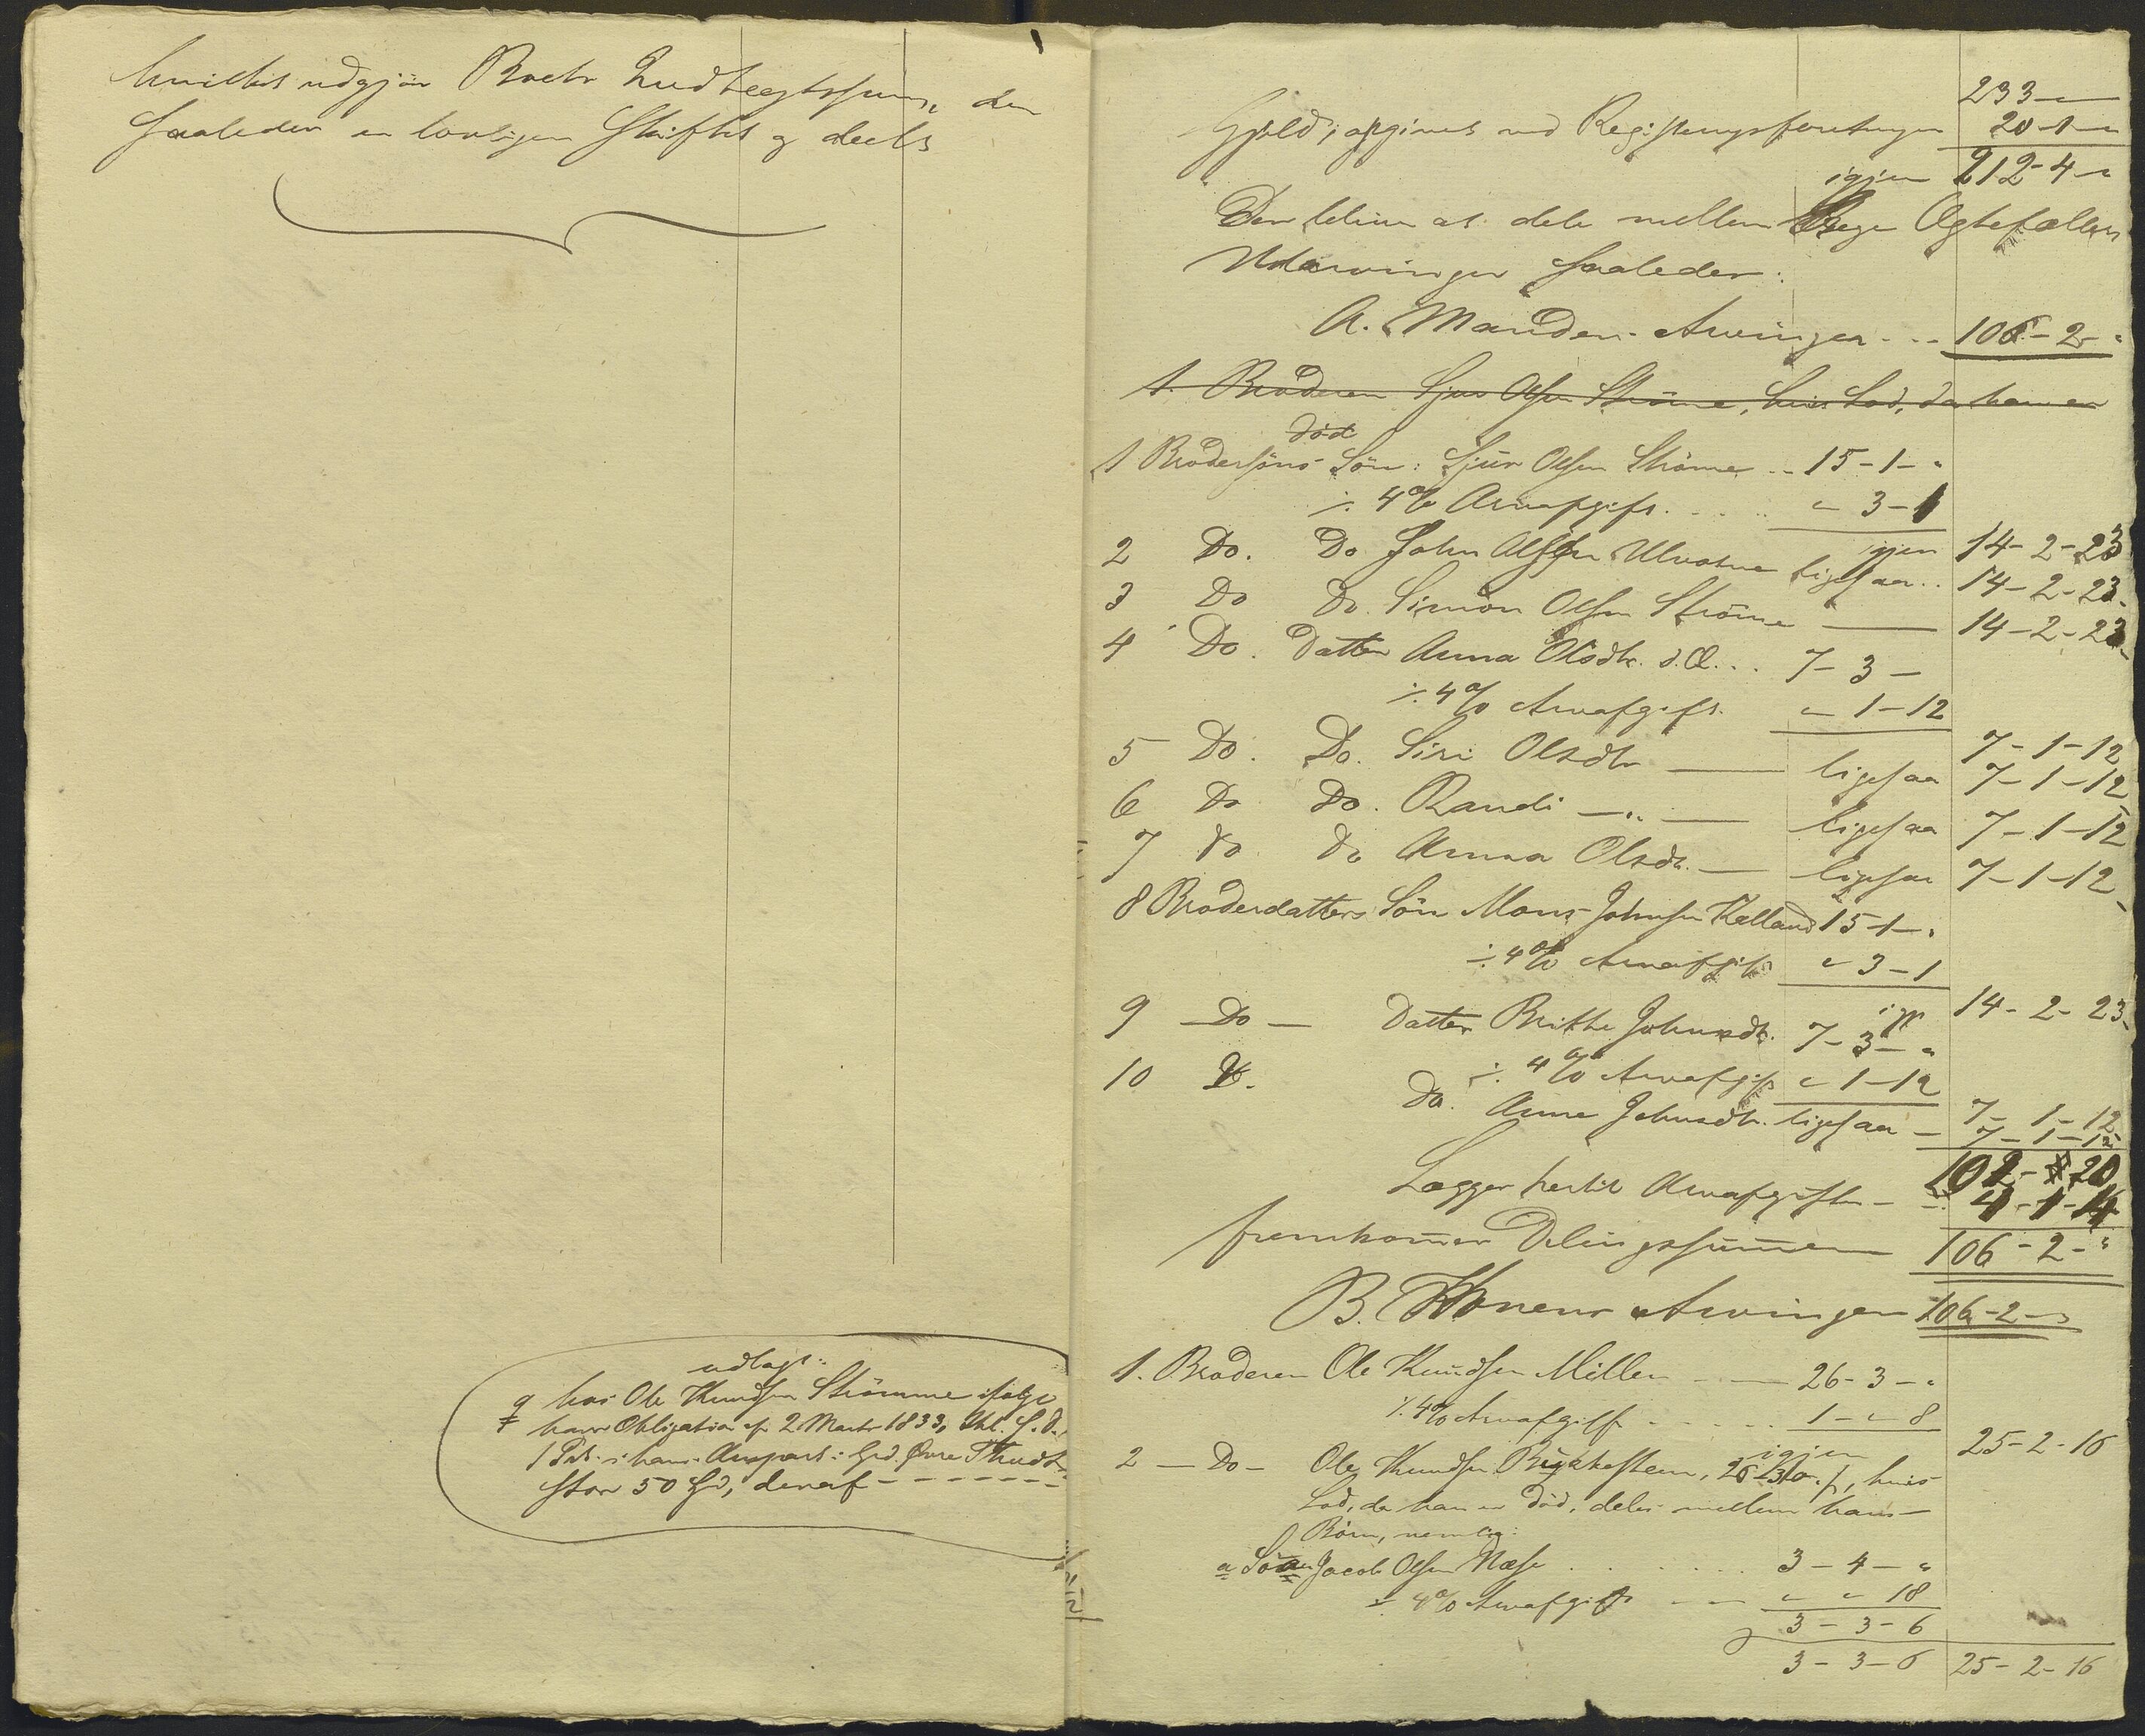 hvilket udgjør Boets Indtægtssum, der
saaledes er lovligen skiftet og deelt
udlagt:
q hos Ole Knudsen Strømme ifølge
hans Obligation af 2 Marts 1833,
1 Pt. i hans Anpart i Grd. Øvre
stor 50 Sp, deraf - - - - - - -
233 -
Gjeld, opgivet ved Registeringsforretningen 20-1-"
igjen 212-4-"
Den bliver at dele mellem Begge Ægtefællers
Udarvinger saaledes:
A. Mandens Arvinger - - - 106-2-"
1. Broderen Sjur Olsen Strømme, hvis Lod, da han er
død
1 Brodersøns Søn: Sjur Olsen Strømme - - 15-1-"
÷ 4% Arveafgift. . . . . " 3-1
igjen 14-2-23
2 Do. Do. John Olsen Ulvatne ligesaa . . 14-2-23
3 Do Do. Simon Olsen Strømme — 14-2-23
4 Do. Datter Anna Olsdtr. d.Æ. . . 7-3-
÷ 4% Arveafgift. " 1-12
7-1-12
5 Do. Do. Siri Olsdtr — ligesaa 7-1-12
6 Do Do. Randi —"— ligesaa 7-1-12
7 do do Anna Olsdtr. — ligesaa 7-1-12
8 Broderdatters Søn Mons Johnsen Kelland 15-1-"
÷ 4% Arveafgift " 3-1
igjen 14-2-23
9 — Do — Datter Brithe Johnsdtr. 7-3-"
÷ 4% Arveafgift " 1-12
7-1-12
10 D. Do. Anna Johnsdtr. ligesaa — 7-1-12
102-20
Lægges hertil Arveafgiften — 4-1-14
fremkommer Delingssummen 106-2-"
B. Konens Arvinger 106-2-"
1. Broderen Ole Knudsen Millen — 26-3-"
÷ 4% Arveafgift - - - - - 1-"-8
igjen 25-2-16
2 — Do — Ole Knudsen hvis
Lod, da han er død, deles mellem hans
Børn, nemlig:
a Sønnen Jacob Olsen Næse . . . . . 3-4-"
÷ 4% Arveafgift — " " 18
3-3-6
3-3-6 25-2-16